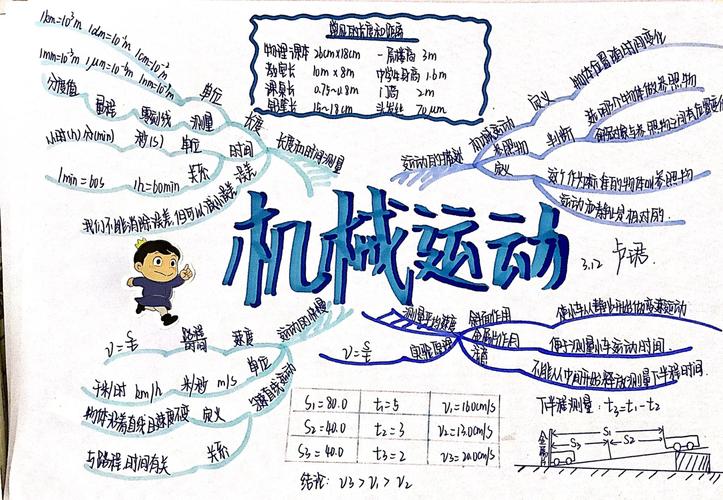 1km=10³m 1dm=10⁻¹m 1cm=10⁻²m
1mm=10⁻³m 1μm=10⁻⁶m 1nm=10⁻⁹m
单位
分度值 量程 零刻线 测量
长度
长度和时间测量
时(h) 分(min) 秒(s) 单位
时间
1min=60s 1h=60min 关系
误差
我们不能消除误差,但可以减小误差
常见的长度和距离
物理课本 26cm×18cm 一层楼高 3m
教室长 10m×8m 中学生身高 1.6m
课桌长 0.75~0.8m 门高 2m
15~18cm 头发丝 70μm
运动的描述
机械运动 定义 物体位置随时间变化
参照物
判断
定义 这个作为标准的物体叫参照物
运动和静止是相对的
机械运动
3.12
运动的快慢
v=s/t 路程 时间 速度
单位
千米/时 km/h 米/秒 m/s
匀速直线运动
物体沿着直线且速度不变 定义
与路程、时间有关 关系
测量平均速度
v=s/t 实验原理
斜面作用 使小车从静止开始做加速运动
金属片作用 便于测量小车运动时间.
注意 不能从中间开始释放测量下半程时间.
下半程测量: t₃=t₁-t₂
S₁=80.0 t₁=5 v₁=16.0cm/s
S₂=40.0 t₂=3 v₂=13.0cm/s
S₃=40.0 t₃=2 v₃=20.0cm/s
结论: v₃>v₁>v₂
S₁
S₃ S₂